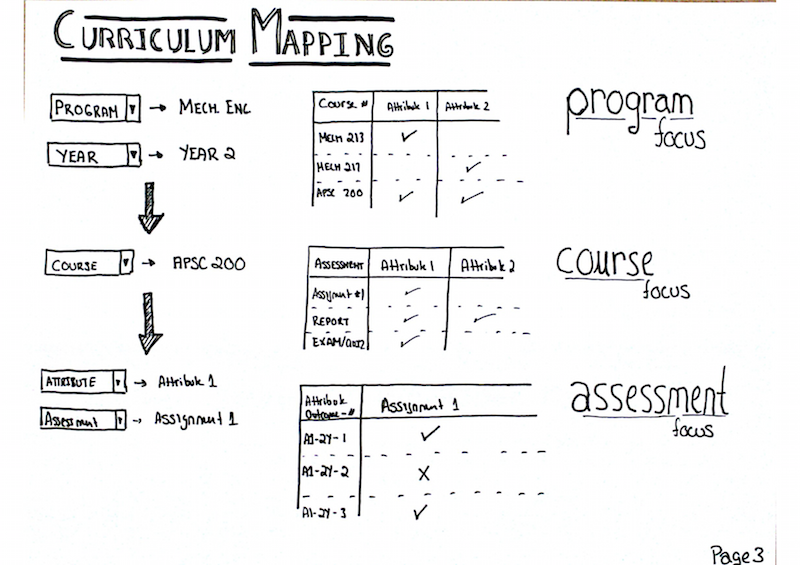 CURRICULUM MAPPING
PROGRAM ▼ → MECH. ENG
YEAR ▼ → YEAR 2
Course # Attribute 1 Attribute 2
MECH 213 ✓
MECH 217 ✓
APSC 200 ✓ ✓
program
focus
COURSE ▼ → APSC 200
ASSESSMENT Attribute 1 Attribute 2
Assignment #1 ✓
REPORT ✓ ✓
EXAM/QUIZ ✓
course
focus
ATTRIBUTE ▼ → Attribute 1
Assessment ▼ → Assignment 1
Attribute
Outcome - # Assignment 1
A1-2Y-1 ✓
A1-2Y-2 X
A1-2Y-3 ✓
assessment
focus
Page 3